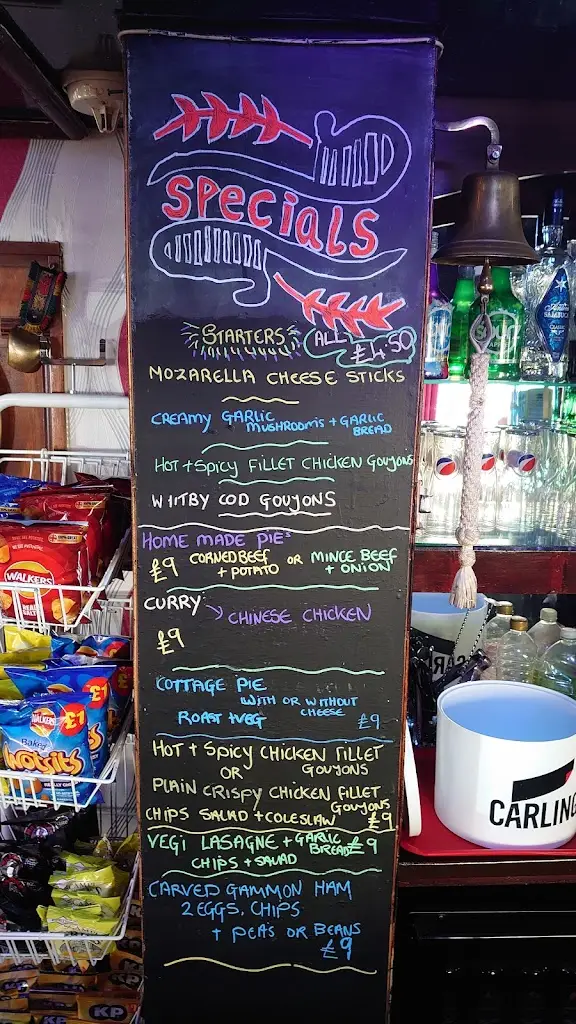 SPECIALS
STARTERS ALL £4.50
MOZARELLA CHEESE STICKS
CREAMY GARLIC
MUSHROOMS + GARLIC
BREAD
HOT + SPICY FILLET CHICKEN GOUJONS
WHITBY COD GOUJONS
HOME MADE PIES
£9 CORNED BEEF OR MINCE BEEF
+ POTATO + ONION
CURRY → CHINESE CHICKEN
£9
COTTAGE PIE
WITH OR WITHOUT
ROAST + VEG CHEESE £9
HOT + SPICY CHICKEN FILLET
OR GOUJONS
PLAIN CRISPY CHICKEN FILLET
GOUJONS
CHIPS SALAD + COLESLAW £9
VEGI LASAGNE + GARLIC
BREAD £9
CHIPS + SALAD
CARVED GAMMON HAM
2 EGGS, CHIPS
+ PEAS OR BEANS
£9
WALKERS
READY SALTED
£1
£1
WALKERS
Baked
Wotsits
KP
KP
CARLING
SAMBUCA